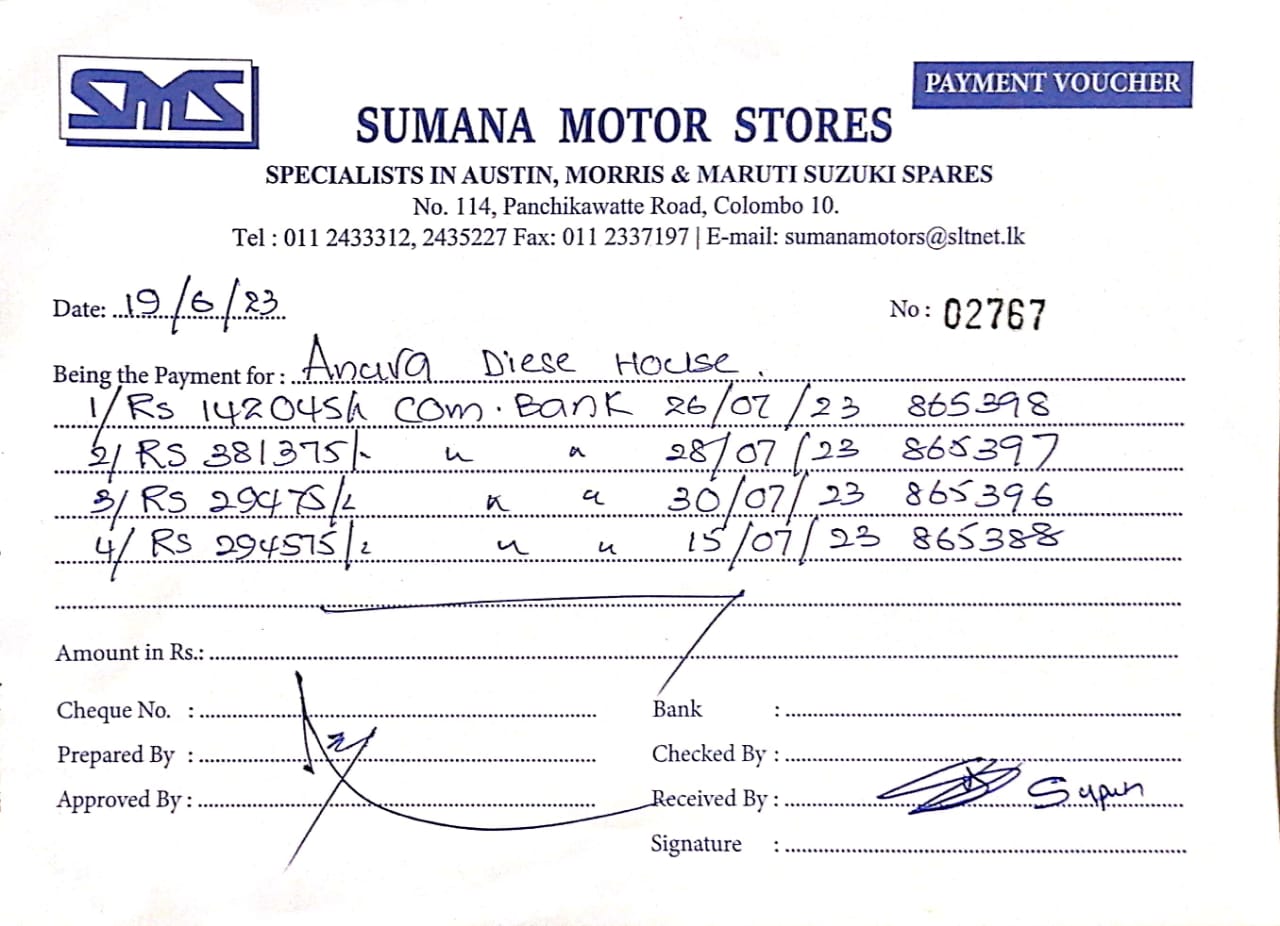 SMS
PAYMENT VOUCHER
SUMANA MOTOR STORES
SPECIALISTS IN AUSTIN, MORRIS & MARUTI SUZUKI SPARES
No. 114, Panchikawatte Road, Colombo 10.
Tel : 011 2433312, 2435227 Fax: 011 2337197 | E-mail: sumanamotors@sltnet.lk
Date: 19/6/23 No : 02767
Being the Payment for : Anura Diese House.
1/ Rs 142045/- Com. Bank 26/07/23 865398
2/ RS 381375/- " " 28/07/23 865397
3/ RS 29475/- " " 30/07/23 865396
4/ RS 294575/- " " 15/07/23 865388
Amount in Rs.:
Cheque No. : Bank :
Prepared By : Checked By :
Approved By : Received By : Supun
Signature :